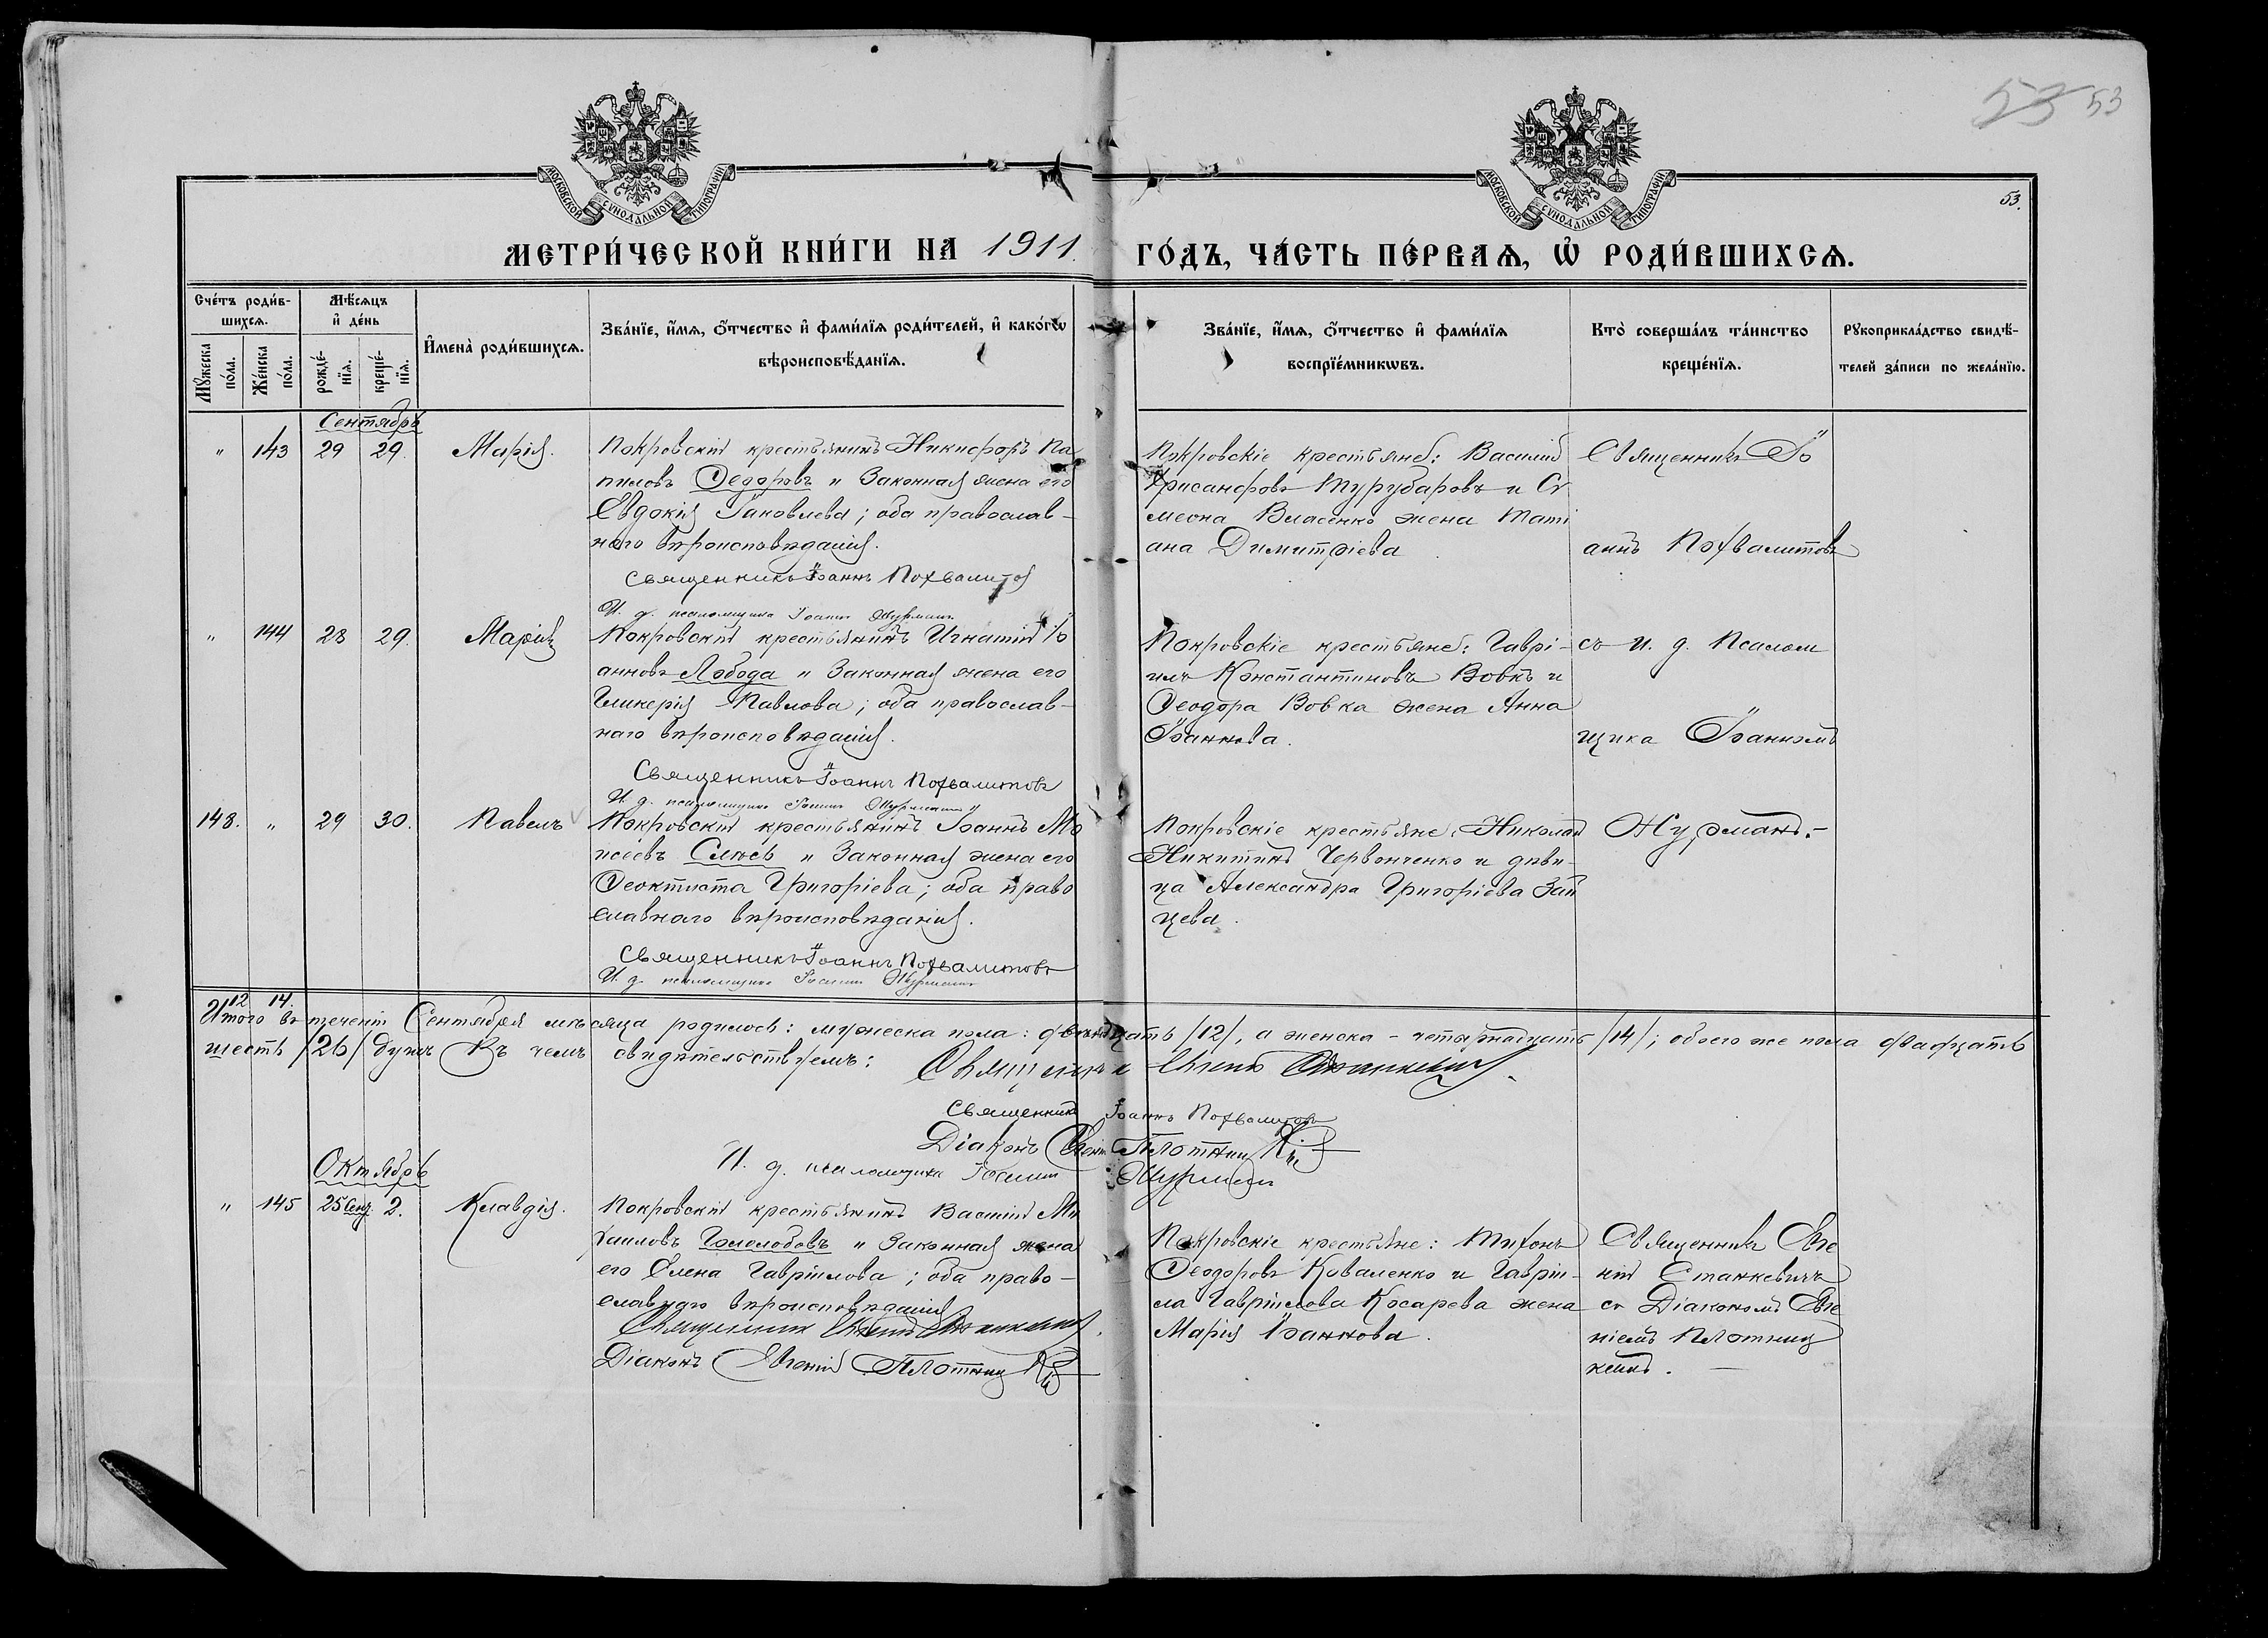 53 53
53.
МОСКОВСКОЙ СѴНОДАЛЬНОЙ ТИПОГРАФІИ
МОСКОВСКОЙ СѴНОДАЛЬНОЙ ТИПОГРАФІИ
МЕТРИ́ЧЕСКОЙ КНИ́ГИ НА 1911. ГО́ДЪ, ЧА́СТЬ ПЕ́РВАѦ, Ѡ҆ РОДИ́ВШИХСѦ.
Сче́тъ роди́в-
шихсѧ.
Мꙋ́жеска по́ла.
Же́нска по́ла.
Мѣ́сѧцъ
и҆ де́нь
рожде́-
нїѧ.
креще́-
нїѧ.
И҆мена̀ роди́вшихсѧ.
Зва́нїе, и҆́мѧ, ѻ҆́тчество и҆ фами́лїѧ роди́телей, и҆ како́гѡ
вѣроисповѣ́данїѧ.
Зва́нїе, и҆́мѧ, ѻ҆́тчество и҆ фами́лїѧ
воспрїе́мникѡвъ.
Кто̀ соверша́лъ та́инство
креще́нїѧ.
Рꙋкоприкла́дство свидѣ́-
телей за́писи по жела́нїю.
Сентябрь
" 143 29 29. Марія.
Покровскій крестьянинъ Никифоръ Па
пиловъ Ѳедоровъ и законная жена его
Евдокія Іаковлева; оба православ-
наго вѣроисповѣданія.
Священникъ Іоаннъ Похвалитов
И. д. псаломщика Іоаннъ Журманъ
Покровскіе крестьяне: Василій
Хрисанфовъ Турубаровъ и Си
меона Власенко жена Тати
ана Димитріева
Священникъ Іо
аннъ Похвалитовъ
" 144 28 29. Марія
Покровскій крестьянинъ Игнатій Іо
анновъ Лобода и законная жена его
Гликерія Павлова; оба православ-
наго вѣроисповѣданія.
Священникъ Іоаннъ Похвалитовъ
И. д. псаломщика Іоаннъ Журманъ
Покровскіе крестьяне: Гаврі-
илъ Константиновъ Вовкъ и
Ѳеодора Вовка жена Анна
Іоаннова.
съ и. д. Псалом
щика Іоанномъ
148. " 29 30. Павелъ
Покровскій крестьянинъ Іоаннъ Мо
исеевъ Слюсь и законная жена его
Ѳеоктиста Григоріева; оба право
славнаго вѣроисповѣданія.
Священникъ Іоаннъ Похвалитовъ
И. д. псаломщика Іоаннъ Журманъ
Покровскіе крестьяне, Николай
Никитинъ Червонченко и дѣви-
ца Александра Григоріева Зай
цева.
Журманъ.-
12 14.
Итого въ теченіи Сентября мѣсяца родилось: мужеска пола: двѣнадцать /12/, а женска - четырнадцать /14/; обоего же пола двадцать
шесть /26/ душъ Въ чемъ свидѣтельствуемъ: Священникъ Евгеній Станкевичъ.
Священникъ Іоаннъ Похвалитовъ
Діаконъ Евгеній Плотницкій
И. д. псаломщика Іоаннъ Журманъ
Октябрь
" 145 25 Сент. 2. Клавдія.
Покровскій крестьянинъ Василій Ми
хаиловъ Гололобовъ и законная жена
его Елена Гавріилова; оба право-
славнаго вѣроисповѣданія
Священникъ Евгеній Станкевичъ.
Діаконъ Евгеній Плотницкій
Покровскіе крестьяне: Тихонъ
Ѳеодоровъ Коваленко и Гавріи-
ла Гавріилова Косарева жена
Марія Іоаннова.
Священникъ Евге
ній Станкевичъ
съ Діакономъ Евге
ніемъ Плотниц
кимъ.